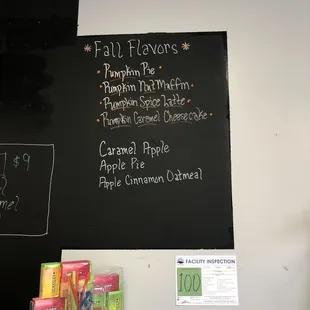 * Fall Flavors *
• Pumpkin Pie
• Pumpkin Nut Muffin
• Pumpkin Spice Latte •
• Pumpkin Caramel Cheesecake •
Caramel Apple
Apple Pie
Apple Cinnamon Oatmeal
$9
FACILITY INSPECTION
100